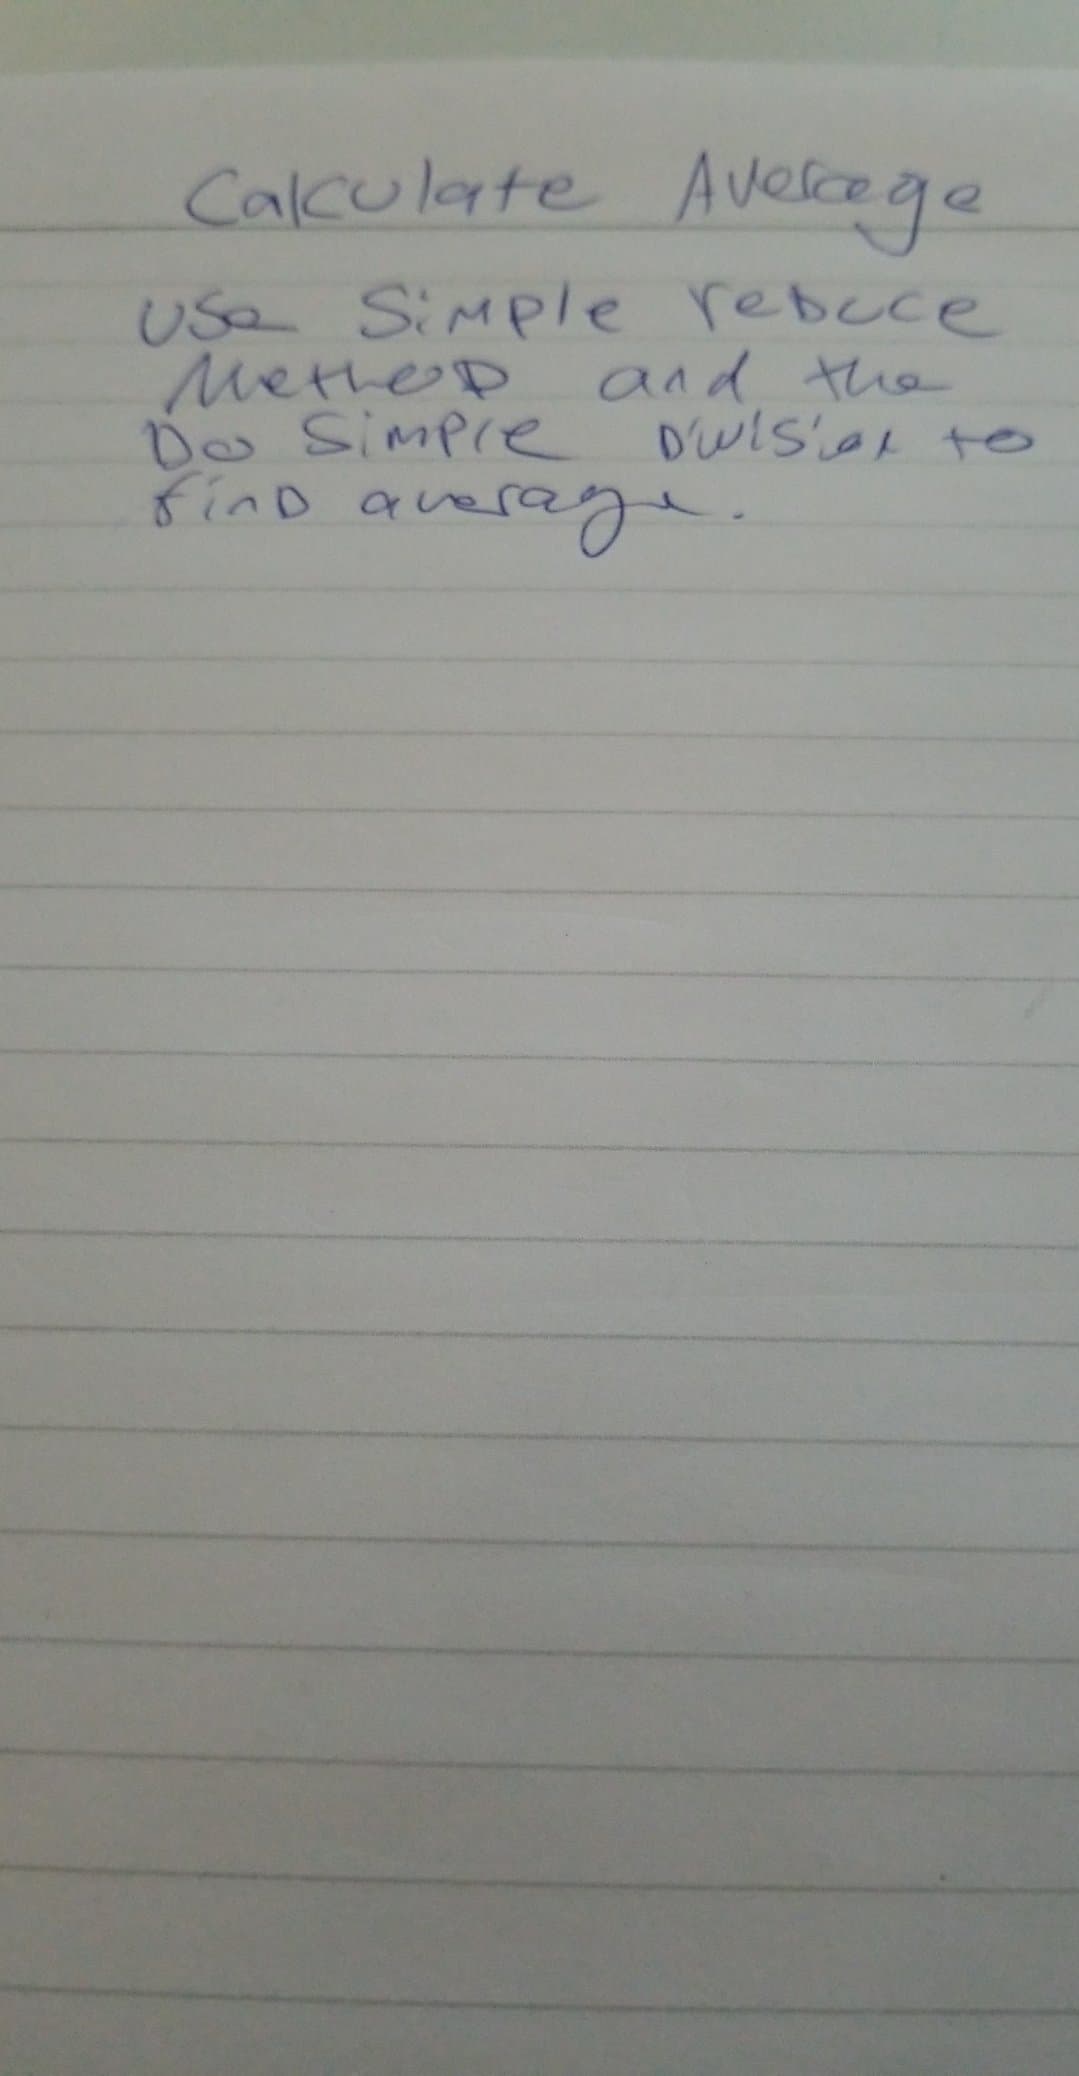 Calculate Average
Use Simple reduce
Method and the
Do Simple Division to
find average.